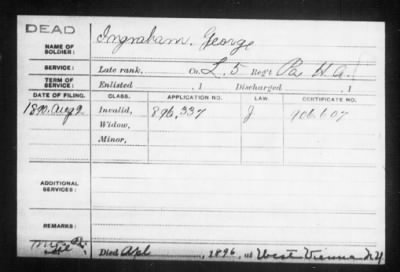 DEAD
NAME OF SOLDIER: Ingraham, George
SERVICE: Late rank, Co. L, 5 Reg't Pa. H. A.
TERM OF SERVICE: Enlisted , 1 Discharged , 1
DATE OF FILING. CLASS. APPLICATION NO. LAW. CERTIFICATE NO.
1890, Aug 9 Invalid, 896,337 J 706.607
Widow,
Minor,
ADDITIONAL SERVICES:
REMARKS:
Died Apl , 1896, at West Vienna N.Y.